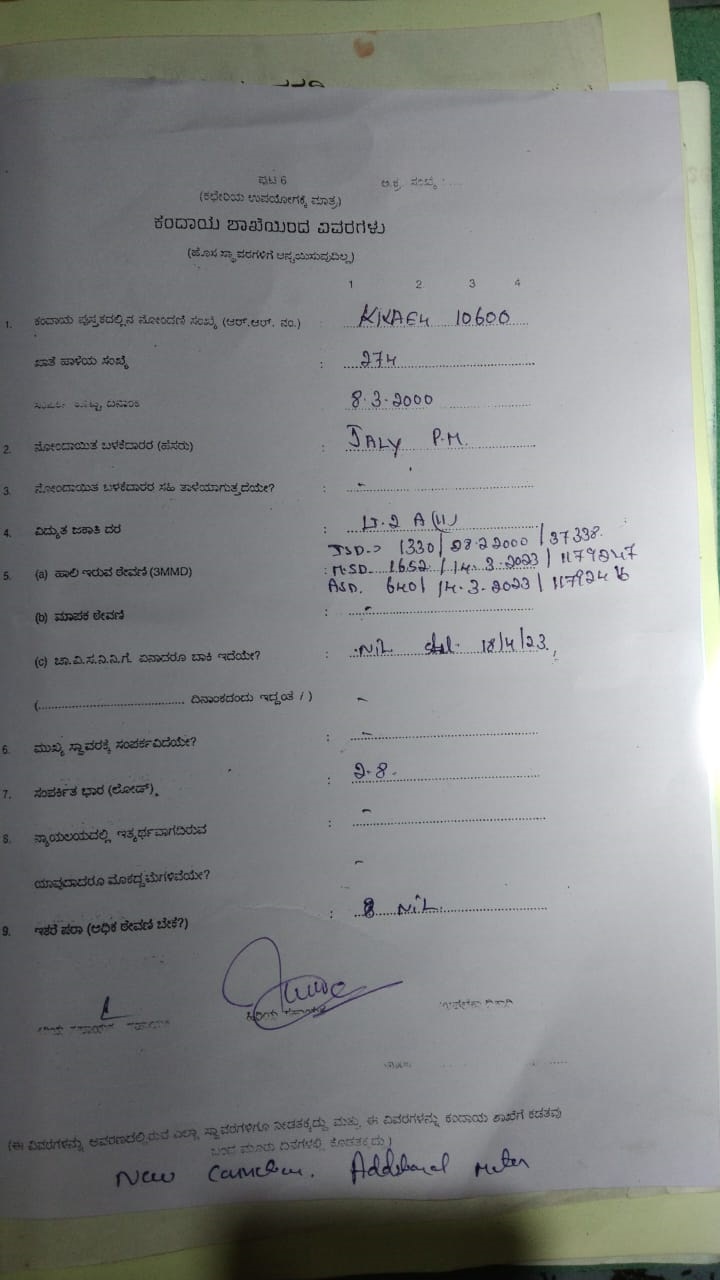 ಪುಟ 6
ಅ.ಕ್ರ. ಸಂಖ್ಯೆ :....
(ಕಛೇರಿಯ ಉಪಯೋಗಕ್ಕೆ ಮಾತ್ರ)
ಕಂದಾಯ ಶಾಖೆಯಿಂದ ವಿವರಗಳು
(ಹೊಸ ಸ್ಥಾವರಗಳಿಗೆ ಅನ್ವಯಿಸುವುದಿಲ್ಲ)
1 2 3 4
1. ಕಂದಾಯ ಪುಸ್ತಕದಲ್ಲಿನ ನೋಂದಣಿ ಸಂಖ್ಯೆ (ಆರ್.ಆರ್. ನಂ.) 10600
ಖಾತೆ ಹಾಳೆಯ ಸಂಖ್ಯೆ : 274
ದಿನಾಂಕ 8.3.2000
2. ನೋಂದಾಯಿತ ಬಳಕೆದಾರರ (ಹೆಸರು) : JALY P.M.
3. ನೋಂದಾಯಿತ ಬಳಕೆದಾರರ ಸಹಿ ತಾಳೆಯಾಗುತ್ತದೆಯೇ? : -
4. ವಿದ್ಯುತ ಜಕಾತಿ ದರ : LT.2 A(ii)
ISD.> 1330/28.2.2000/37338.
5. (a) ಹಾಲಿ ಇರುವ ಠೇವಣಿ (3MMD) : MSD- 1652/14.3.2023/1179247
ASD. 640/14.3.2023/1179246
(b) ಮಾಪಕ ಠೇವಣಿ : -
(c) ಚಾ.ವಿ.ಸ.ನಿ.ನಿ.ಗೆ. ಏನಾದರೂ ಬಾಕಿ ಇದೆಯೇ? : NIL 18/4/23.
(........................................ ದಿನಾಂಕದಂದು ಇದ್ದಂತೆ / ) -
6. ಮುಖ್ಯ ಸ್ಥಾವರಕ್ಕೆ ಸಂಪರ್ಕವಿದೆಯೇ? : -
7. ಸಂಪರ್ಕಿತ ಭಾರ (ಲೋಡ್) : 2.8.
8. ನ್ಯಾಯಲಯದಲ್ಲಿ ಇತ್ಯರ್ಥವಾಗದಿರುವ : -
ಯಾವುದಾದರೂ ಮೊಕದ್ದಮೆಗಳಿವೆಯೇ? -
9. ಇತರೆ ಷರಾ (ಅಧಿಕ ಠೇವಣಿ ಬೇಕೆ?) : NIL.
ಹಿರಿಯ ಸಹಾಯಕ
(ಈ ವಿವರಗಳನ್ನು ಆವರಣದಲ್ಲಿರುವ ಎಲ್ಲಾ ಸ್ಥಾವರಗಳಿಗೂ ನೀಡತಕ್ಕದ್ದು ಮತ್ತು ಈ ವಿವರಗಳನ್ನು ಕಂದಾಯ ಶಾಖೆಗೆ ಕಡತವು
ಬಂದ ಮೂರು ದಿನಗಳಲ್ಲಿ ಕೊಡತಕ್ಕದು)
New Connection. Additional meter